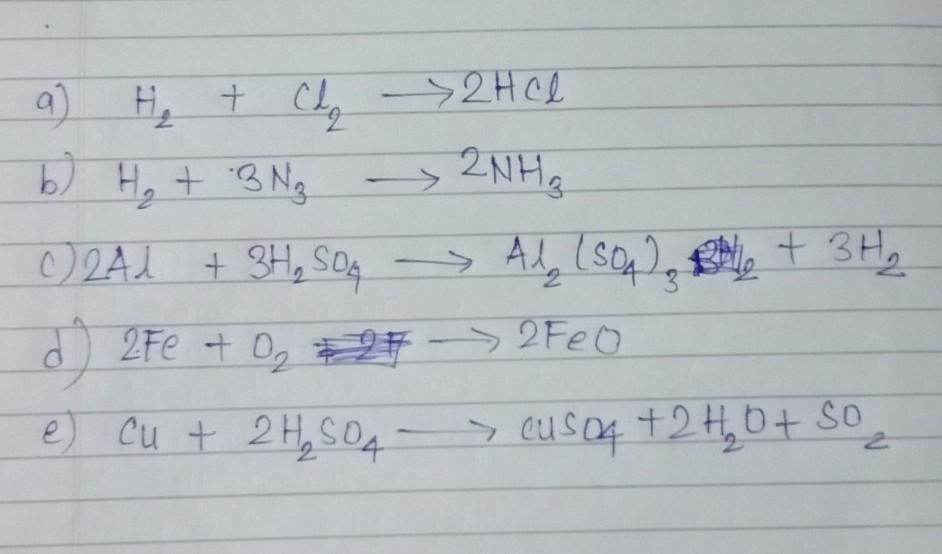 a) H₂ + Cl₂ → 2HCl
b) H₂ + 3N₃ → 2NH₃
c) 2Al + 3H₂SO₄ → Al₂(SO₄)₃ + 3H₂
d) 2Fe + O₂ → 2FeO
e) Cu + 2H₂SO₄ → CuSO₄ + 2H₂O + SO₂